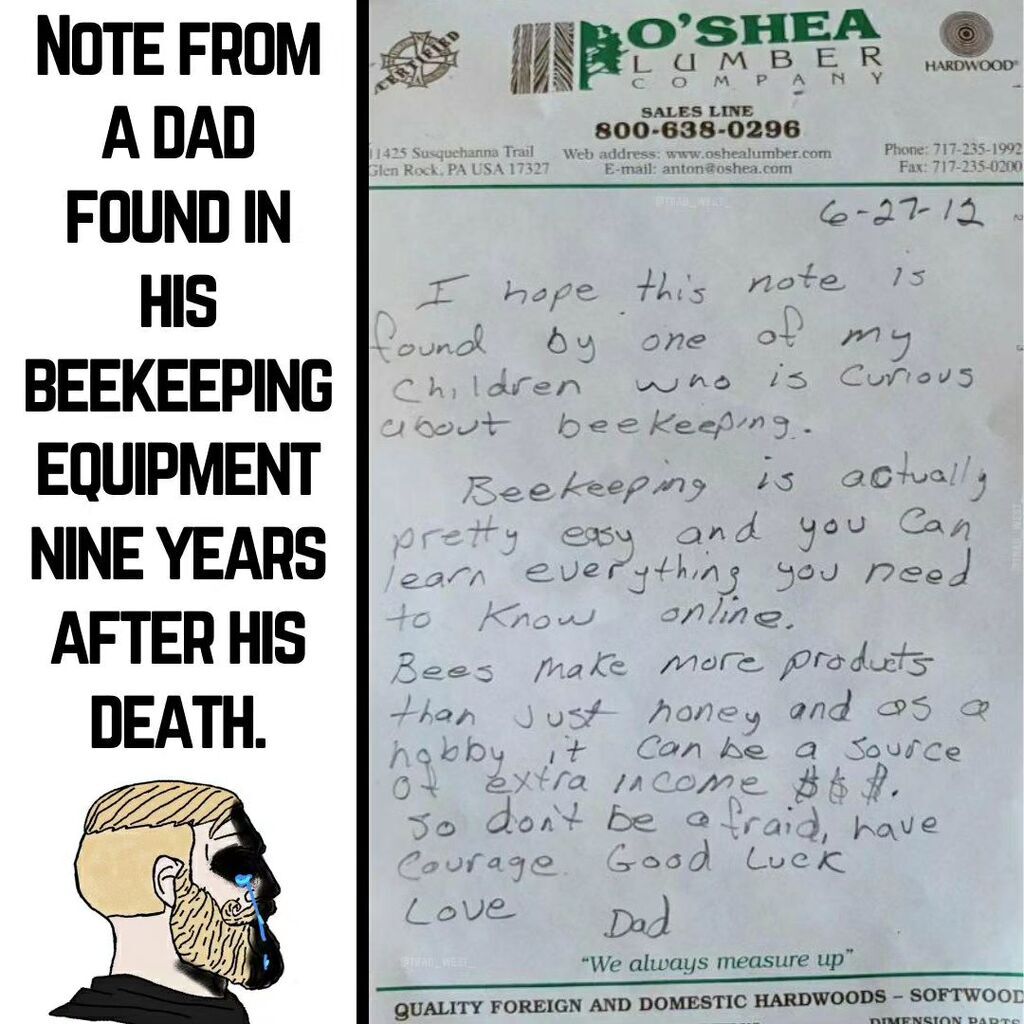 NOTE FROM
A DAD
FOUND IN
HIS
BEEKEEPING
EQUIPMENT
NINE YEARS
AFTER HIS
DEATH.
CERTIFIED
O'SHEA
LUMBER
COMPANY
HARDWOOD
SALES LINE
800-638-0296
11425 Susquehanna Trail
Glen Rock, PA USA 17327
Web address: www.oshealumber.com
E-mail: anton@oshea.com
Phone: 717-235-1992
Fax: 717-235-0200
@TRAD_WEST_
6-27-12
I hope this note is
found by one of my
children who is curious
about beekeeping.
Beekeeping is actually
pretty easy and you can
learn everything you need
to know online.
Bees make more products
than just honey and as a
hobby it can be a source
of extra income $$$.
So don't be afraid, have
courage. Good Luck
Love Dad
@TRAD_WEST_
"We always measure up"
QUALITY FOREIGN AND DOMESTIC HARDWOODS – SOFTWOOD
DIMENSION PARTS